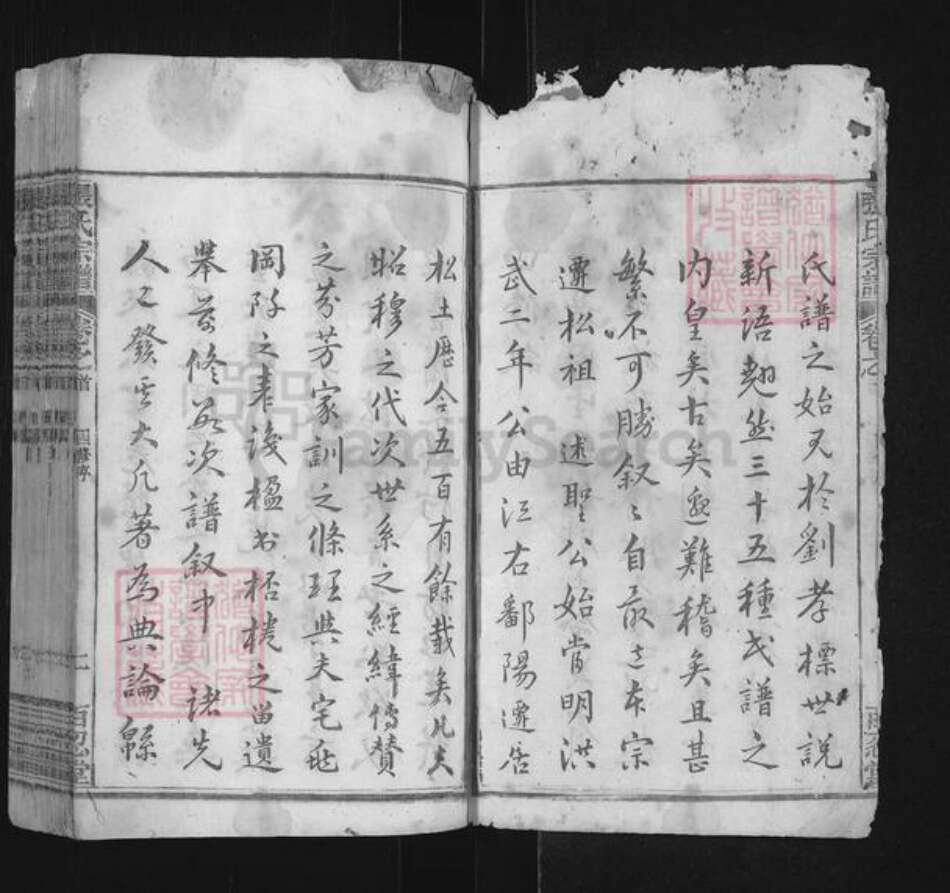 氏譜之始見於劉孝標世說
新語趙然三十五種氏譜之
內皇矣古矣邈難稽矣且甚
繁不可勝叙叙自前之本宗
遷松祖述聖公始當明洪
武二年公由江右鄱陽遷居
松土歷今五百有餘載矣凡夫
昭穆之代次世系之經緯傳贊
之芬芳家訓之條理與夫宅兆
岡阡之表後楹書桮棬之留遺
舉前修數次譜叙中諸先
人已發其大凡著為典論緜
張氏宗譜
卷之首
四修序
一
百忍堂
張氏宗譜
卷之首
百忍堂
FamilySearch